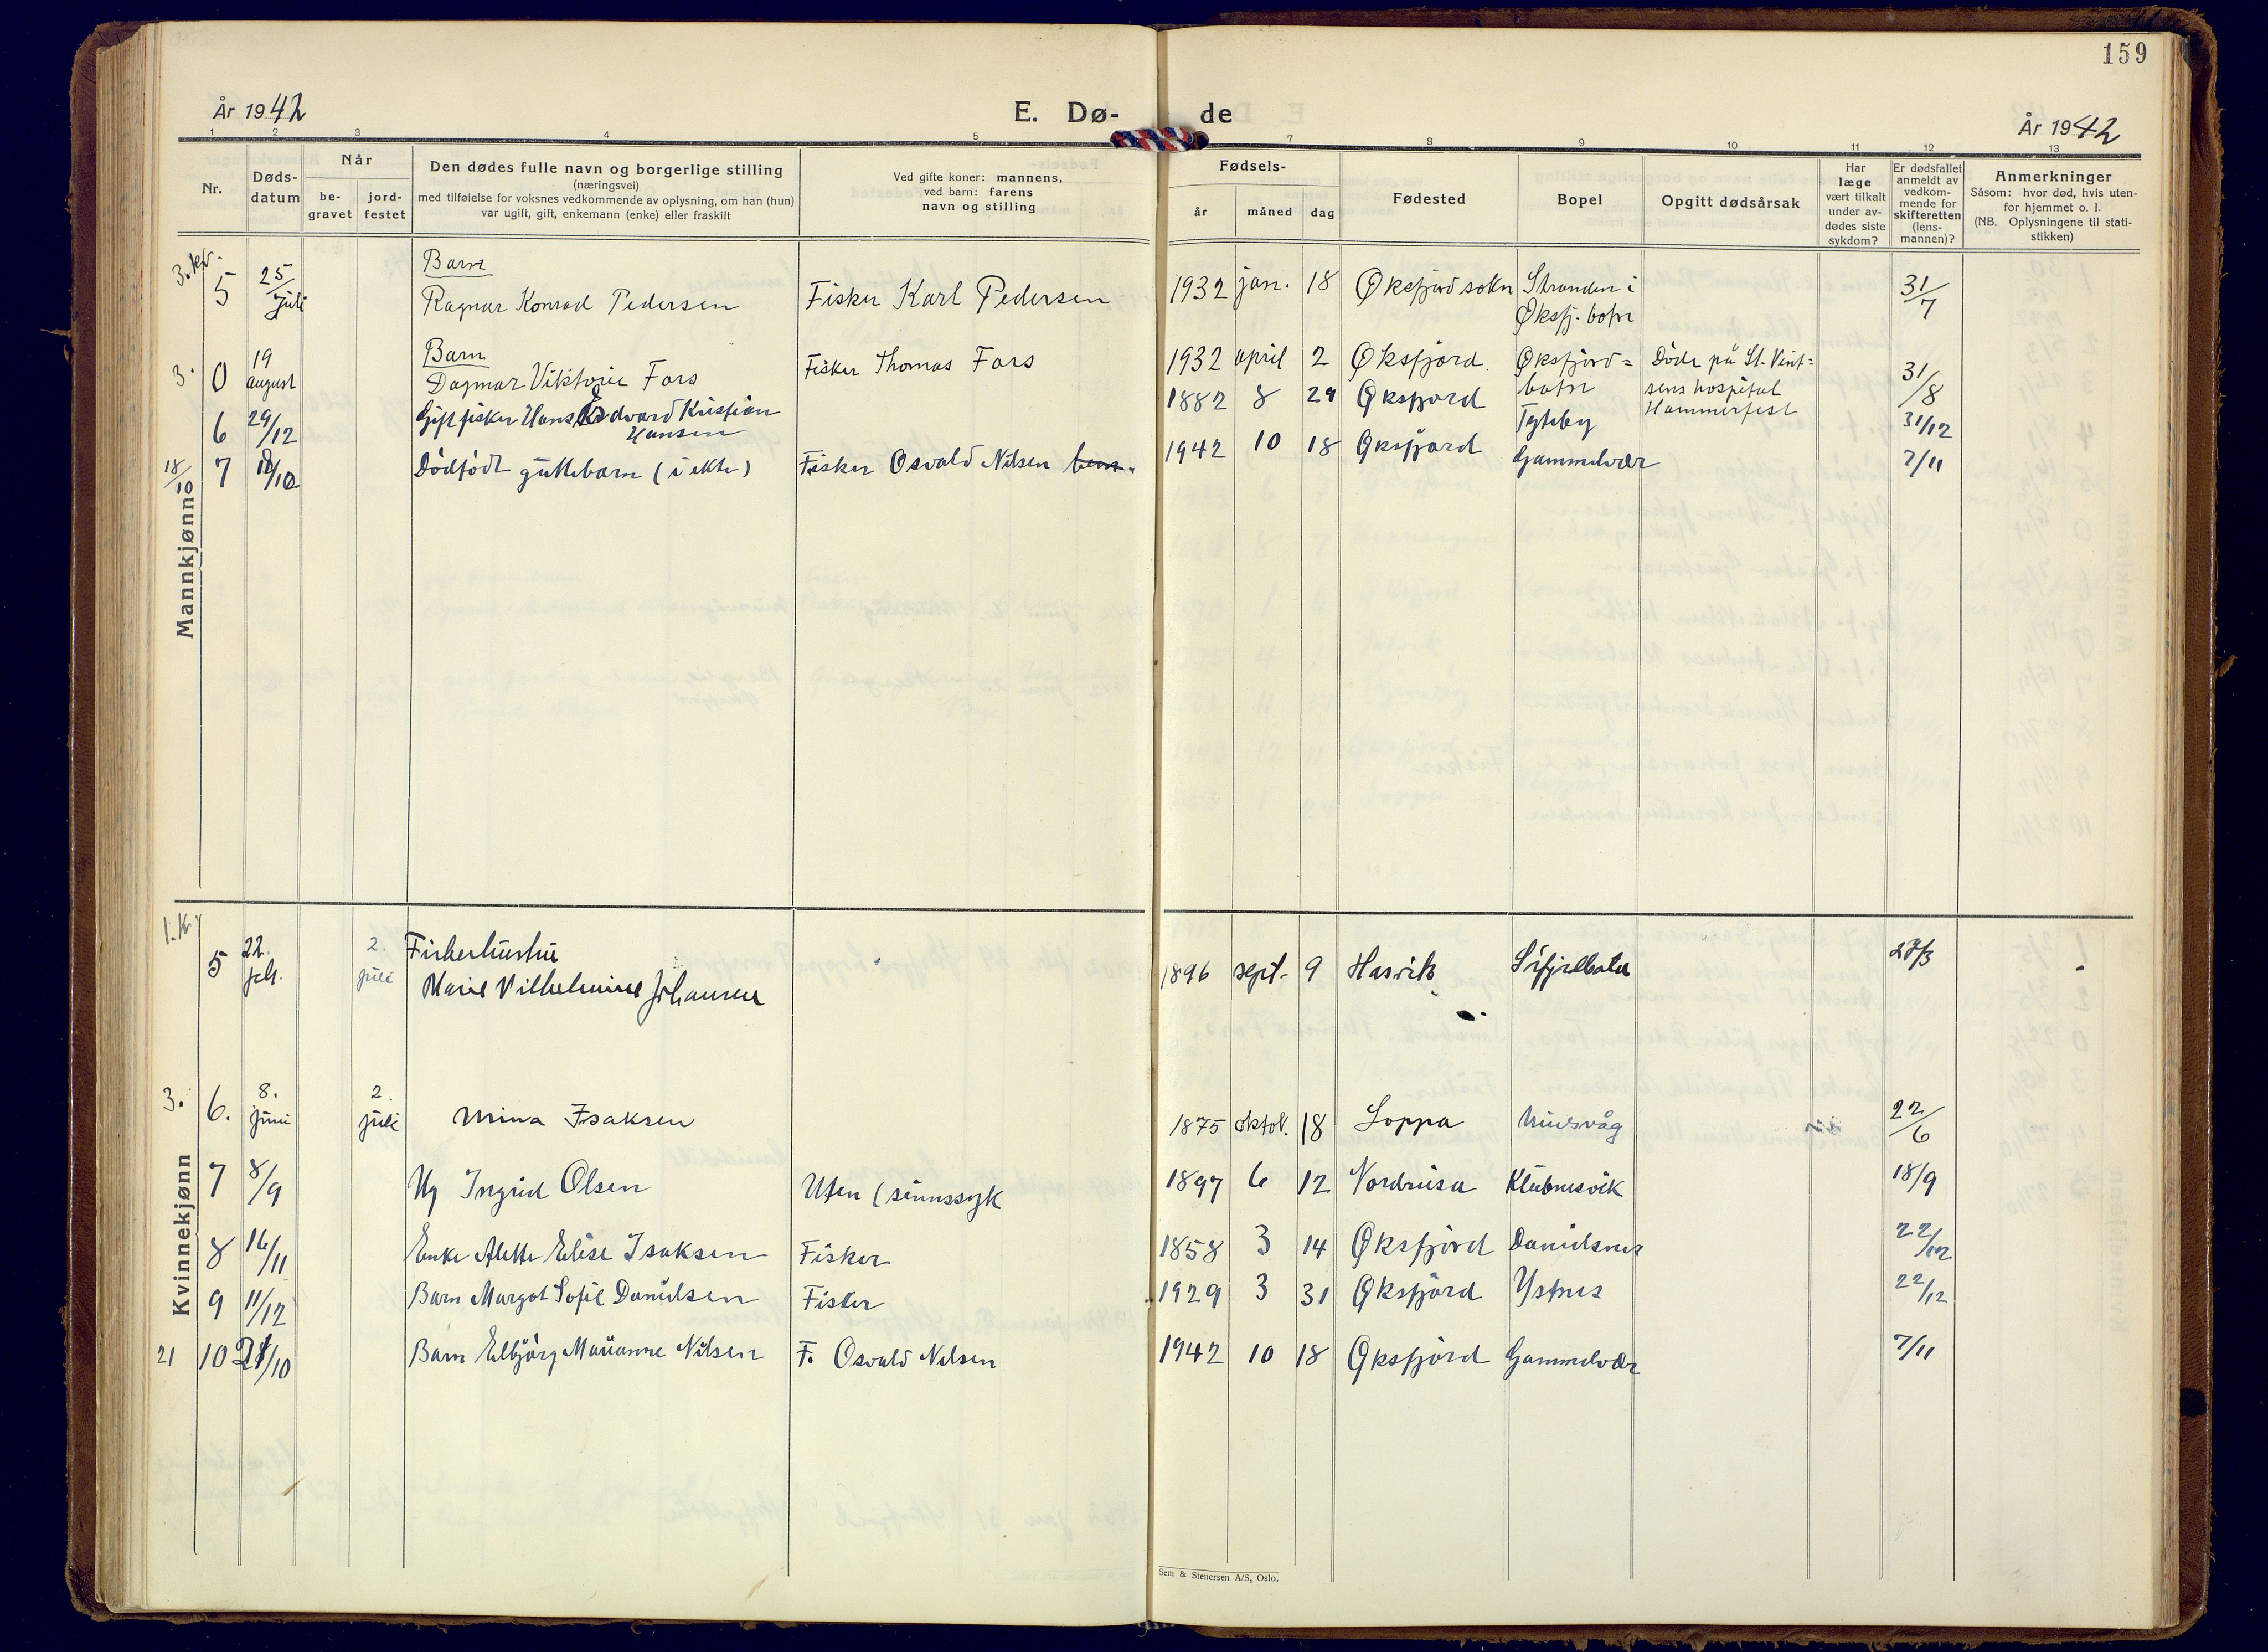 159
År 1942
E. Dø-
de
År 1942
1 2 3 4 5 7 8 9 10 11 12 13
Nr.
Døds-
datum
Når
be-
gravet
jord-
festet
Den dødes fulle navn og borgerlige stilling
(næringsvei)
med tilføielse for voksnes vedkommende av oplysning, om han (hun)
var ugift, gift, enkemann (enke) eller fraskilt
Ved gifte koner: mannens,
ved barn: farens
navn og stilling
Fødsels-
år måned dag
Fødested
Bopel
Opgitt dødsårsak
Har
læge
vært tilkalt
under av-
dødes siste
sykdom?
Er dødsfallet
anmeldt av
vedkom-
mende for
skifteretten
(lens-
mannen)?
Anmerkninger
Såsom: hvor død, hvis uten-
for hjemmet o. l.
(NB. Oplysningene til stati-
stikken)
Mannkjønn
3. kv.
5 25/juli
Barn
Ragnar Konrad Pedersen
Fisker Karl Pedersen
1932 jan. 18 Øksfjord sokn
Stranden i
Øksfj. botn
31/7
3.
0 19 august
Barn
Dagmar Viktorie Fors
Fisker Thomas Fors
1932 april 2 Øksfjord.
Øksfjord=
botn
Døde på St. Vint=
sens hospital
Hammerfest
31/8
6 29/12
Gift fisker Hans Edvard Kristian
Hansen
1882 8 29 Øksfjord
Tyteby
31/12
18/10
7 18/10
Dødfødt guttebarn (i ekte)
Fisker Osvald Nilsen
1942 10 18 Øksfjord
Gammelvær
7/11
Kvinnekjønn
1. kv
5 22. feb.
2. juli
Fiskerhustru
Marie Vilhelmine Johansen
1896 sept. 9 Hasvik
27/3
3.
6. 8. juni
2. juli
Mina Isaksen
1875 oktob. 18 Loppa
22/6
7 8/9
Ug Ingrid Olsen
Uten (sinnssyk
1897 6 12 Nordreisa Klubnesvik
18/9
8 16/11
Enke Alette Elise Isaksen
Fisker
1858 3 14 Øksfjord Danielsnes
22/12
9 11/12
Barn Margot Sofie Danielsen
Fisker
1929 3 31 Øksfjord Ystnes
22/12
21
10 21/10
Barn Elbjørg Marianne Nilsen
F. Osvald Nilsen
1942 10 18 Øksfjord Gammelvær
7/11
Sem & Stenersen A/S, Oslo.